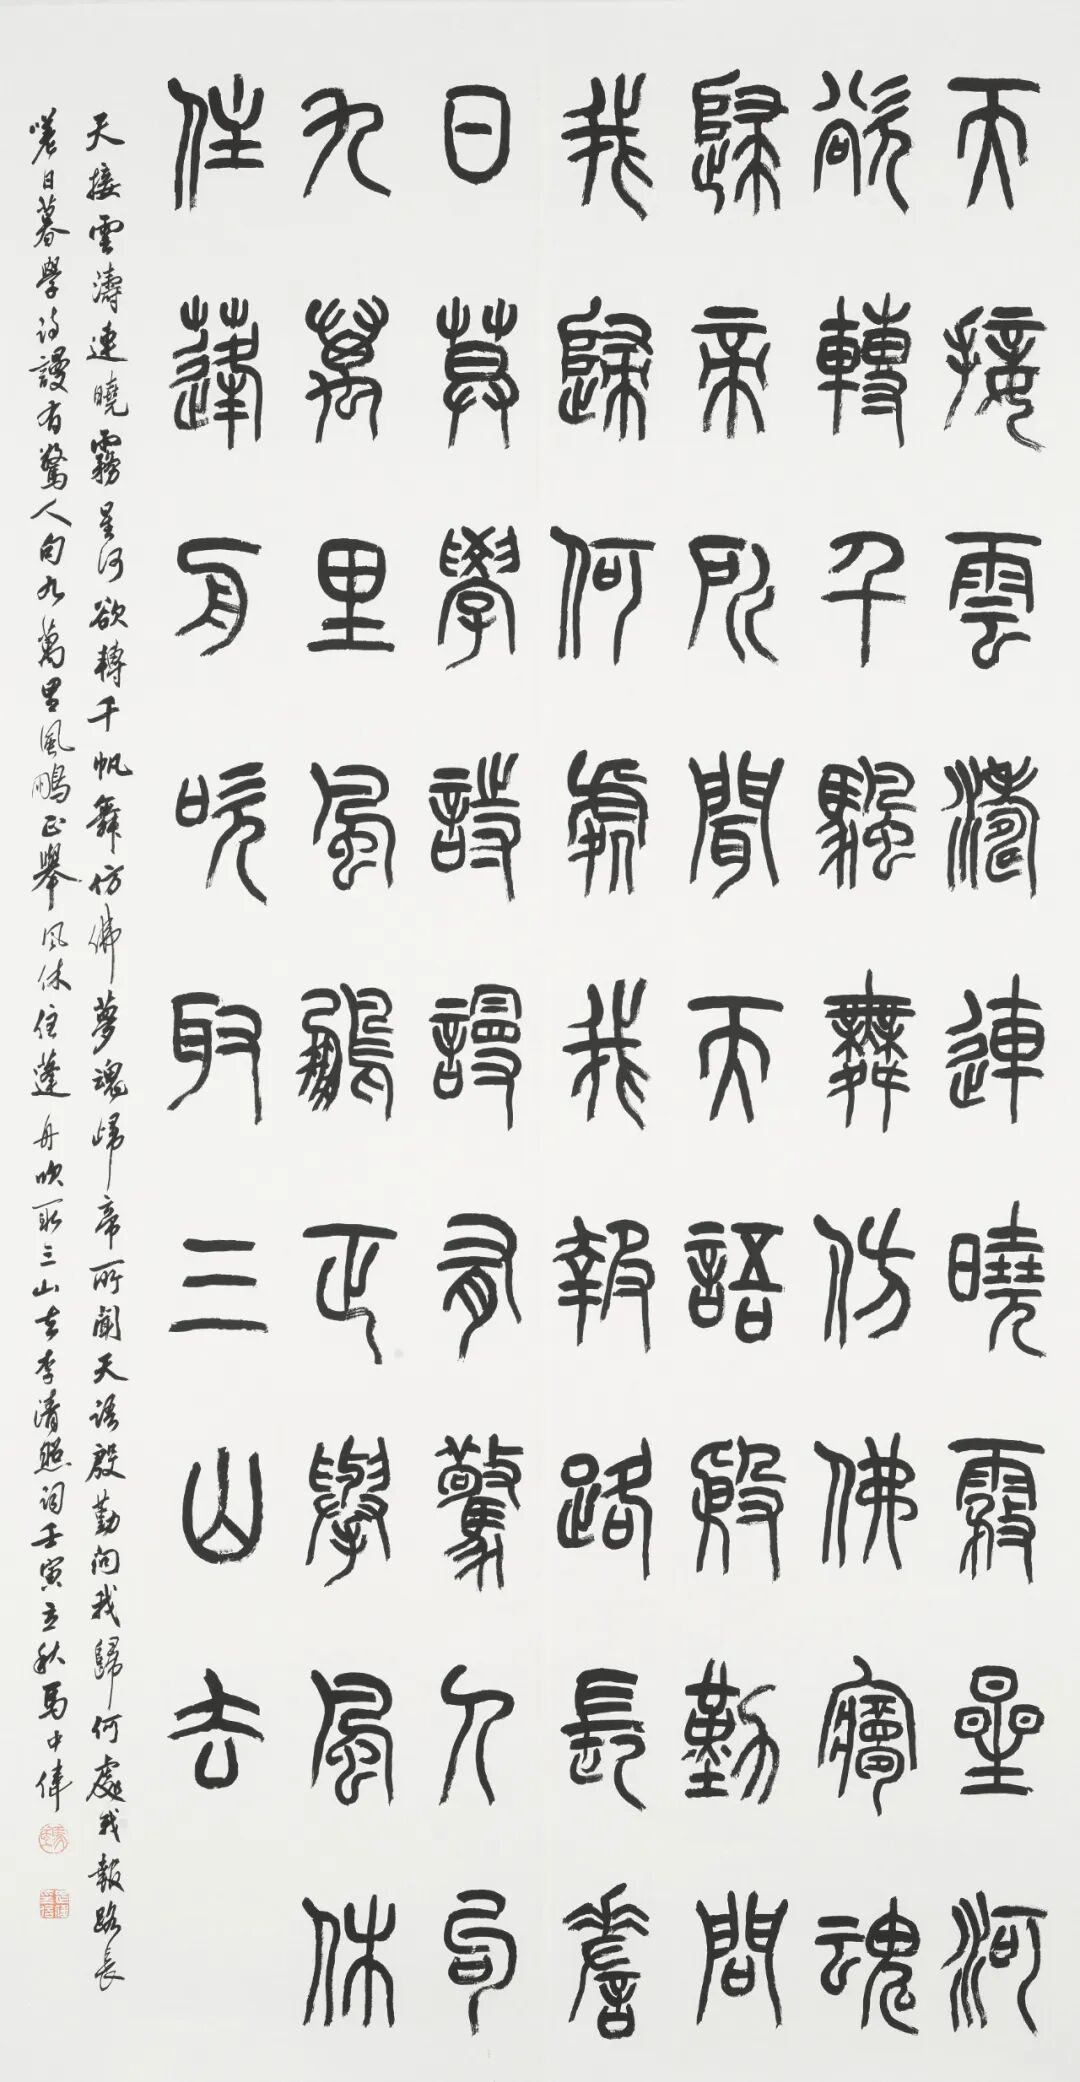 天接雲濤連曉霧星河
欲轉千颿舞仿佛夢魂
歸帝所聞天語殷勤問
我歸何處我報路長嗟
日莫學詩謾有驚人句
九萬里風鵬正舉風休
住蓬舟吹取三山去
天接雲濤連曉霧星河欲轉千帆舞仿佛夢魂歸帝所聞天語殷勤問我歸何處我報路長
嗟日暮學詩謾有驚人句九萬里風鵬正舉風休住蓬舟吹取三山去李清照詞壬寅立秋馬中偉